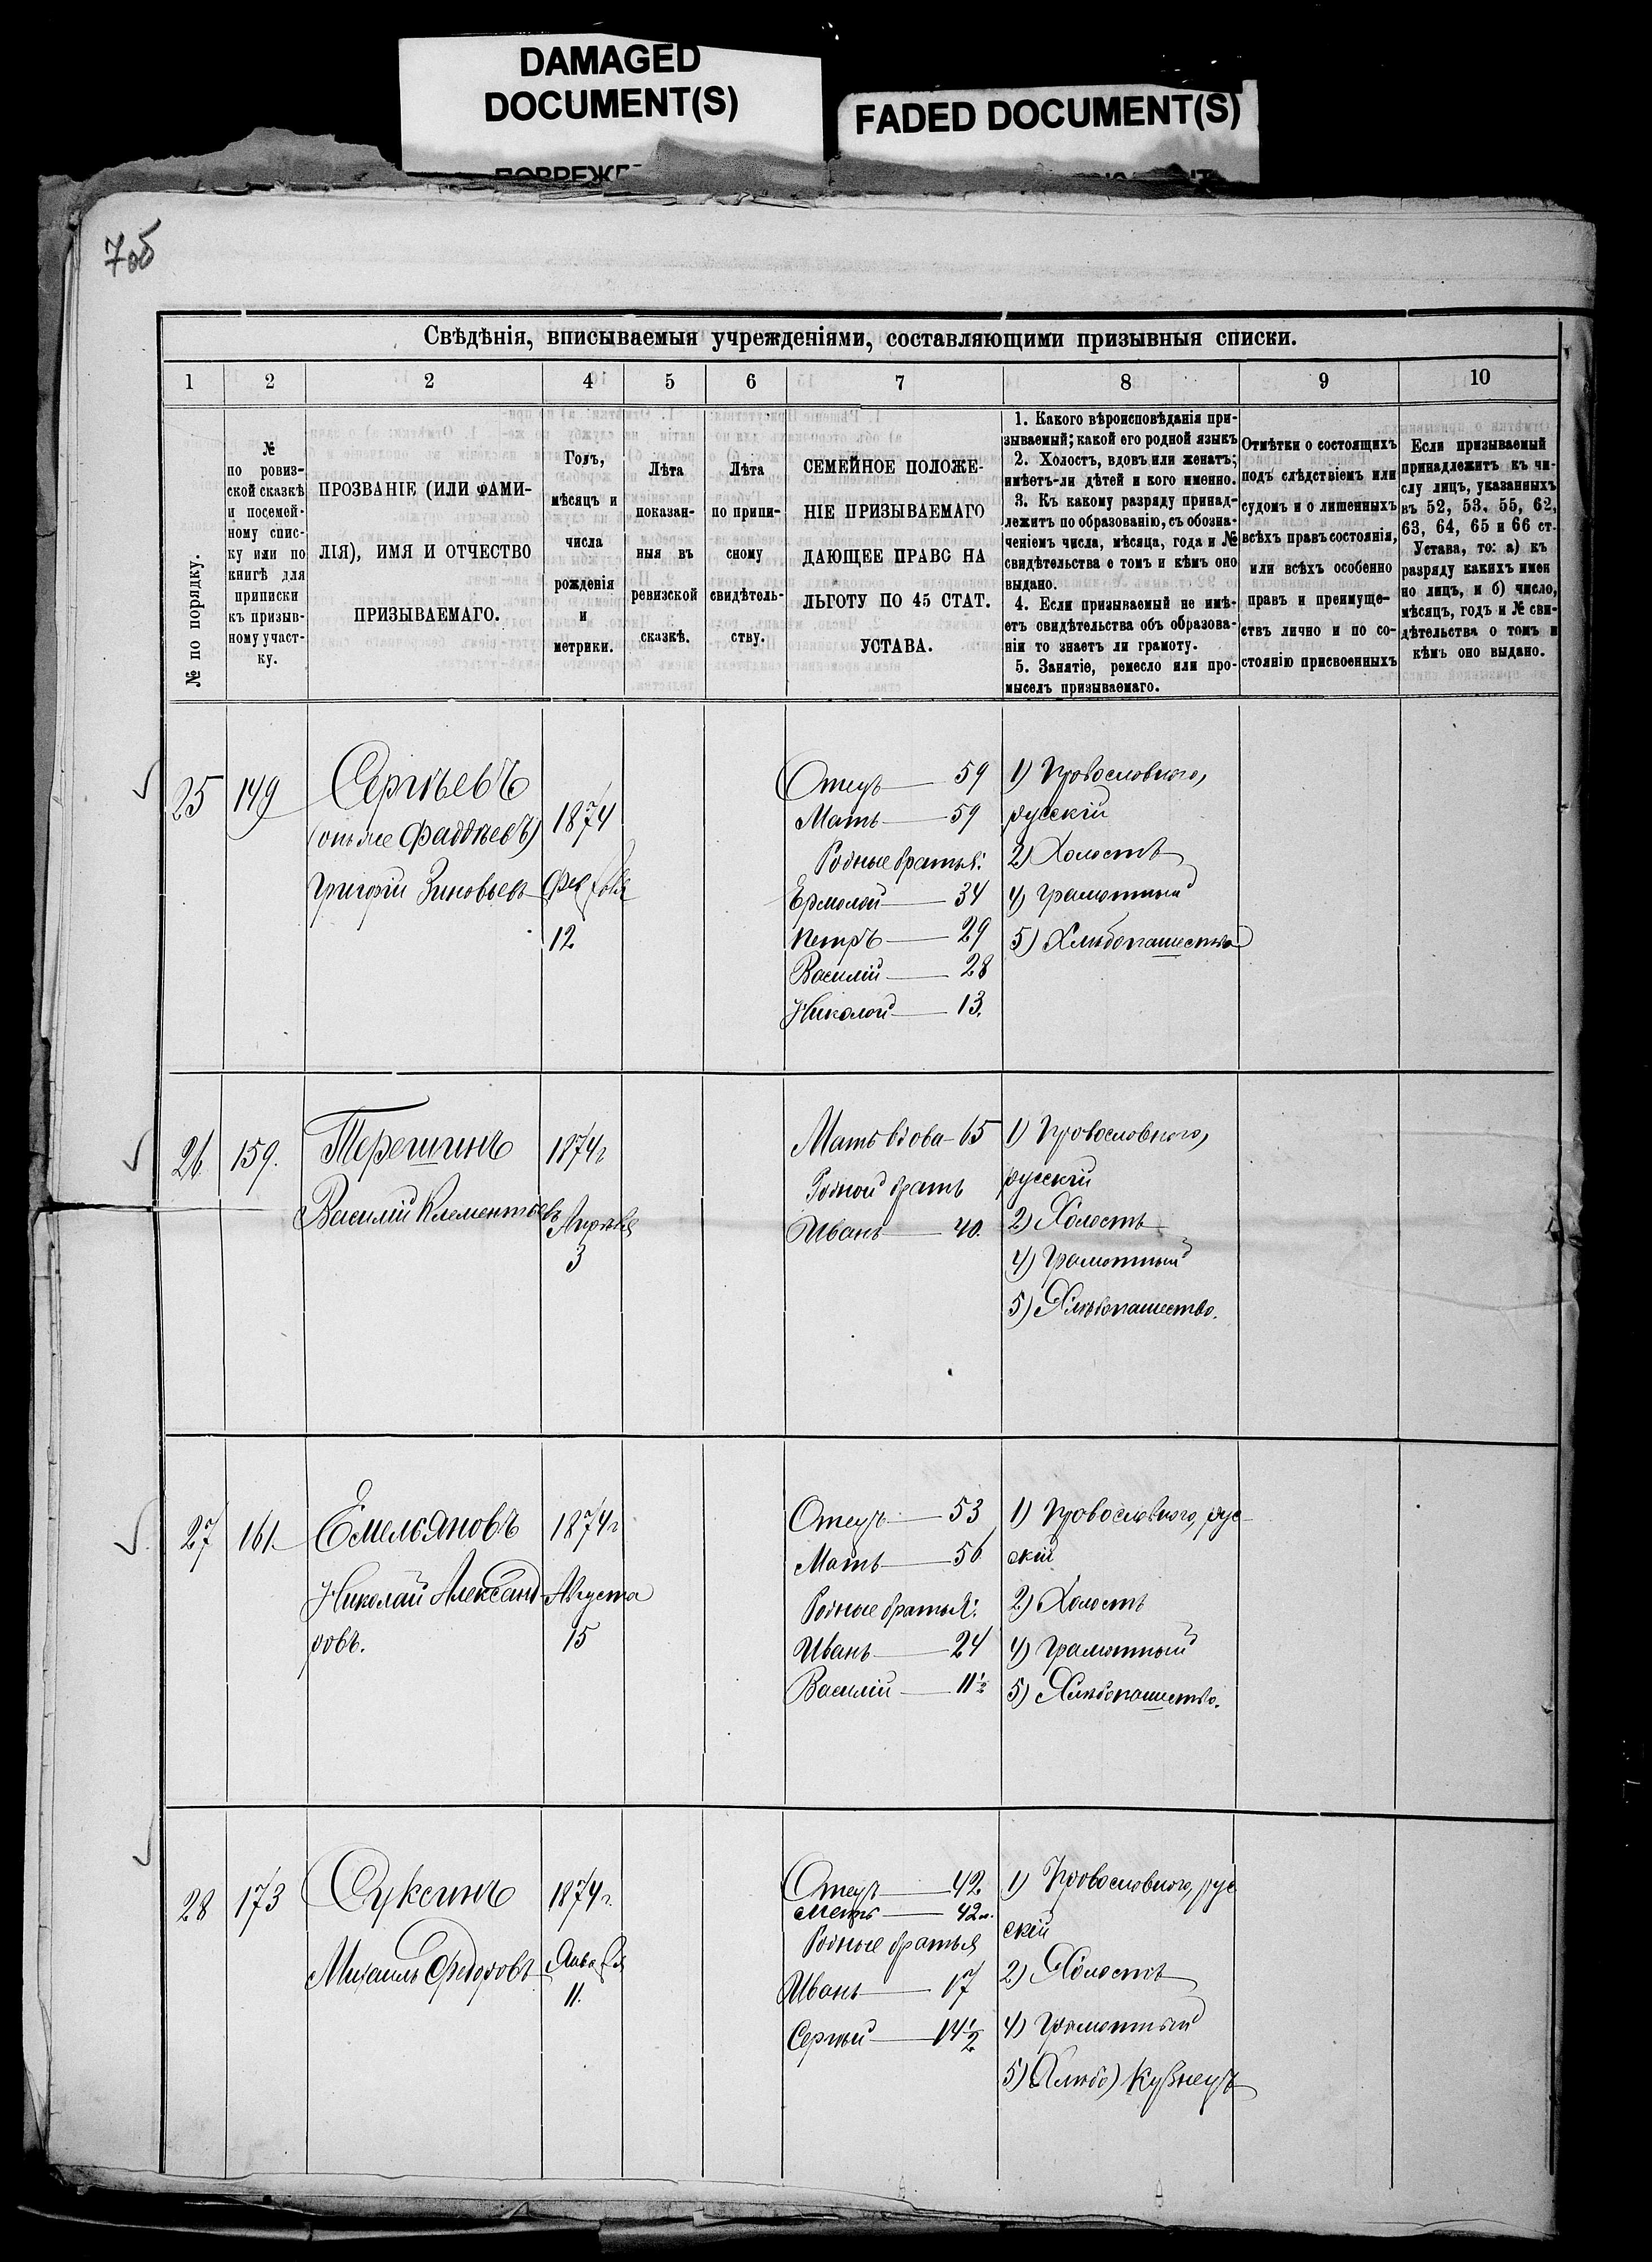 DAMAGED
DOCUMENT(S)
FADED DOCUMENT(S)
7об
Свѣдѣнія, вписываемыя учрежденіями, составляющими призывныя списки.
1 2 2 4 5 6 7 8 9 10
№ по порядку.
№
по ровиз-
ской сказкѣ
и посемей-
ному спис-
ку или по
книгѣ для
приписки
къ призыв-
ному участ-
ку.
ПРОЗВАНІЕ (ИЛИ ФАМИ-
ЛІЯ), ИМЯ И ОТЧЕСТВО
ПРИЗЫВАЕМАГО.
Годъ,
мѣсяцъ и
числа
рожденія
и
метрики.
Лѣта
показан-
ныя въ
ревизской
сказкѣ.
Лѣта
по припи-
сному
свидѣтель-
ству.
СЕМЕЙНОЕ ПОЛОЖЕ-
НІЕ ПРИЗЫВАЕМАГО
ДАЮЩЕЕ ПРАВО НА
ЛЬГОТУ ПО 45 СТАТ.
УСТАВА.
1. Какого вѣроисповѣданія при-
зываемый; какой его родной языкъ
2. Холостъ, вдовъ или женатъ;
имѣетъ-ли дѣтей и кого именно.
3. Къ какому разряду принад-
лежитъ по образованію, съ обозна-
ченіемъ числа, мѣсяца, года и №
свидѣтельства о томъ и кѣмъ оно
выдано.
4. Если призываемый не имѣ-
етъ свидѣтельства объ образова-
ніи то знаетъ ли грамоту.
5. Занятіе, ремесло или про-
мыселъ призываемаго.
Отмѣтки о состоящихъ
подъ слѣдствіемъ или
судомъ и о лишенныхъ
всѣхъ правъ состоянія,
или всѣхъ особенно
правъ и преимуще-
ствъ лично и по со-
стоянію присвоенныхъ
Если призываемый
принадлежитъ къ чи-
слу лицъ, указанныхъ
въ 52, 53, 55, 62,
63, 64, 65 и 66 ст.
Устава, то: а) къ
разряду какихъ имен
но лицъ, и б) число,
мѣсяцъ, годъ и № сви-
дѣтельства о томъ и
кѣмъ оно выдано.
25 149
Сергѣевъ
(онъ же Фаддѣевъ)
Григорій Зиновьевъ
1874
Февраля
12
Отецъ 59
Мать 59
Родные братья:
Ермолай 34
Петръ 29
Василій 28
Николай 13.
1) Православнаго,
русскій
2) Холостъ
4) Грамотный
5) Хлѣбопашество
26 159.
Терешинъ
Василій Клементьевъ
1874г
Апрѣля
3
Мать вдова 65
Родной братъ
Иванъ 40.
1) Православнаго,
русскій
2) Холостъ
4) Грамотный
5) Хлѣбопашество.
27 161
Емельяновъ
Николай Александ-
ровъ.
1874г
Августа
15
Отецъ 53
Мать 56
Родные братья:
Иванъ 24
Василій 11½
1) Православнаго, рус-
скій
2) Холостъ
4) Грамотный
5) Хлѣбопашество.
28 173
Суксинъ
Михаилъ Федоровъ
1874г.
Января
11.
Отецъ 42
Мать 42
Родные братья
Иванъ 17
Сергѣй 14½
1) Православнаго, рус
скій
2) Холостъ
4) Грамотный
5) (Хлѣбо) Кузнецъ